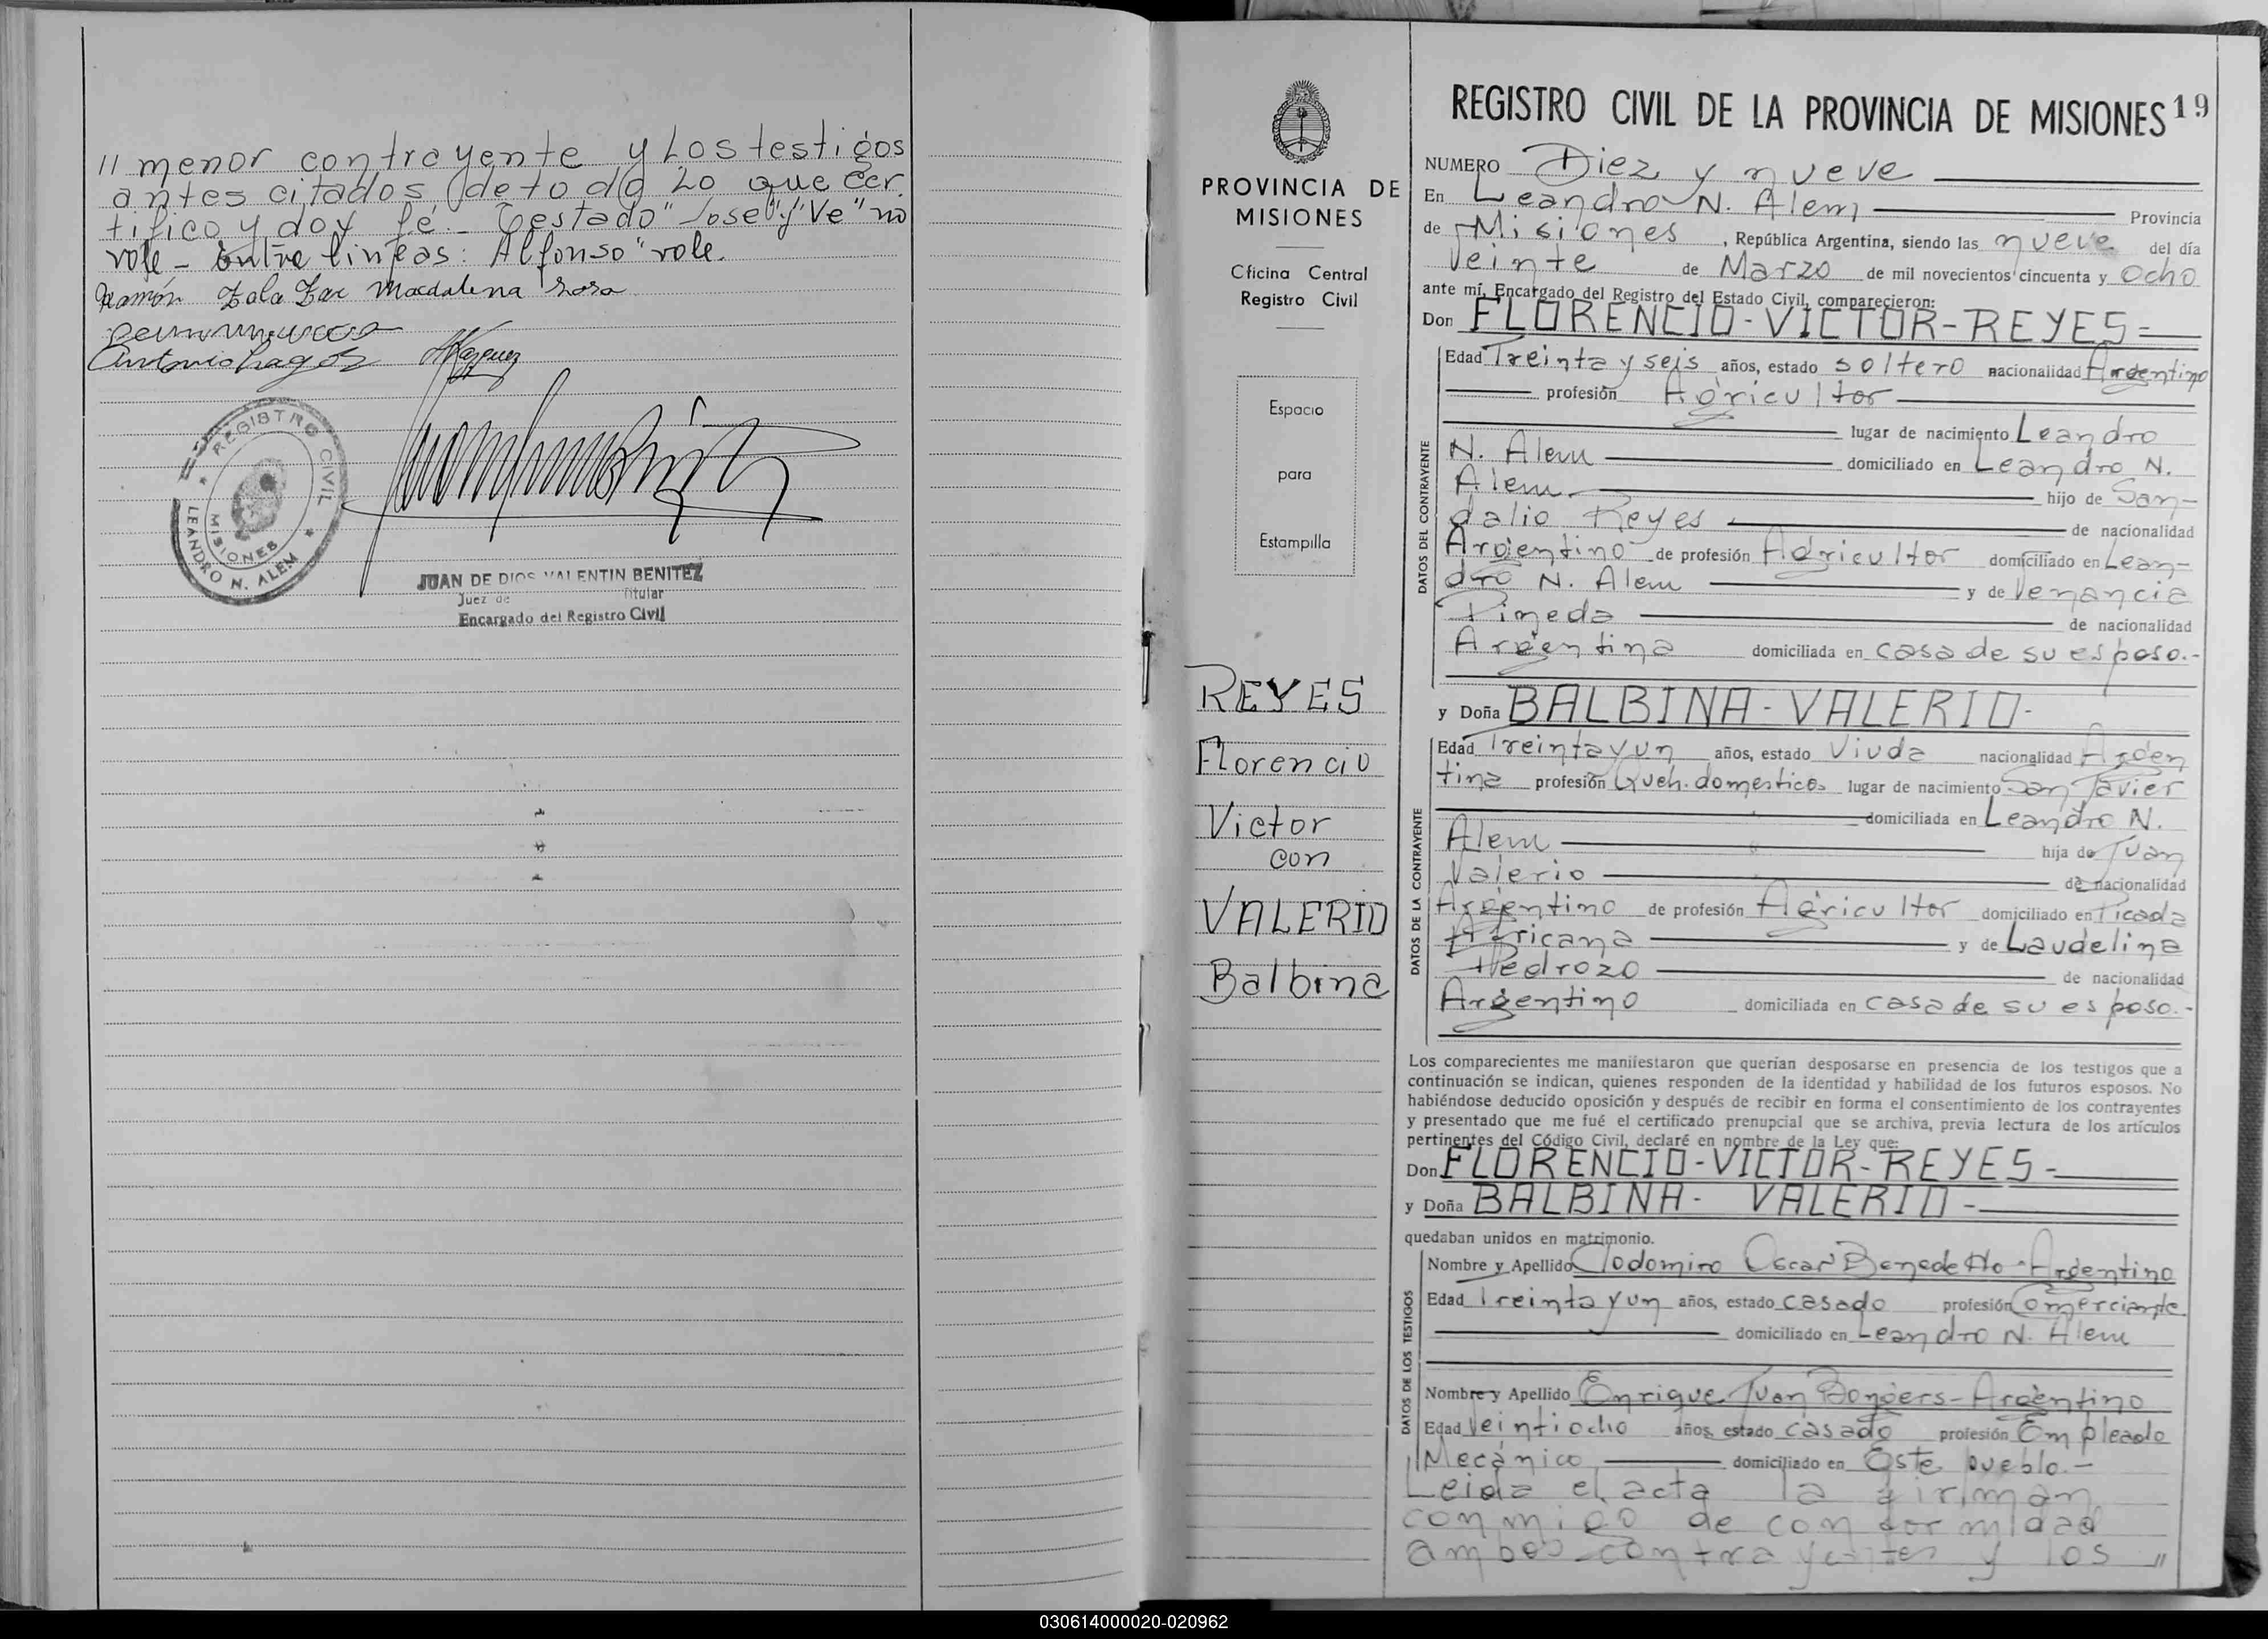 // menor contrayente y Los testigos
antes citados, de todo Lo que cer
tifico y doy fé.- Testado "Jose" y "Ve" no
vale - Entre lineas: "Alfonso" vale.
Ramón Magdalena Rosa
Antonio
Vazquez
REGISTRO CIVIL
MISIONES
LEANDRO N. ALEM
JUAN DE DIOS VALENTIN BENITEZ
Juez de Titular
Encargado del Registro Civil
PROVINCIA DE
MISIONES
Oficina Central
Registro Civil
Espacio
para
Estampilla
REYES
Florencio
Victor
con
VALERIO
Balbina
REGISTRO CIVIL DE LA PROVINCIA DE MISIONES 19
NUMERO Diez y nueve
En Leandro N. Alem Provincia
de Misiones, República Argentina, siendo las nueve del día
Veinte de Marzo de mil novecientos cincuenta y Ocho
ante mí, Encargado del Registro del Estado Civil, comparecieron:
Don FLORENCIO-VICTOR-REYES-
DATOS DEL CONTRAYENTE
Edad Treinta y seis años, estado soltero nacionalidad Argentino
profesión Agricultor
lugar de nacimiento Leandro
N. Alem domiciliado en Leandro N.
Alem hijo de San-
dalio Reyes de nacionalidad
Argentino de profesión Agricultor domiciliado en Lean-
dro N. Alem y de Venancia
Pineda de nacionalidad
Argentina domiciliada en casa de su esposo.-
y Doña BALBINA-VALERIO-
DATOS DE LA CONTRAYENTE
Edad Treinta y un años, estado Viuda nacionalidad Argen
tina profesión Queh. domesticos lugar de nacimiento San Javier
domiciliada en Leandro N.
Alem hija de Juan
Valerio de nacionalidad
Argentino de profesión Agricultor domiciliado en Picada
Africana y de Laudelina
Pedrozo de nacionalidad
Argentino domiciliada en casa de su esposo.-
Los comparecientes me manifestaron que querían desposarse en presencia de los testigos que a
continuación se indican, quienes responden de la identidad y habilidad de los futuros esposos. No
habiéndose deducido oposición y después de recibir en forma el consentimiento de los contrayentes
y presentado que me fué el certificado prenupcial que se archiva, previa lectura de los artículos
pertinentes del Código Civil, declaré en nombre de la Ley que:
Don FLORENCIO-VICTOR-REYES-
y Doña BALBINA- VALERIO-
quedaban unidos en matrimonio.
DATOS DE LOS TESTIGOS
Nombre y Apellido Clodomiro Oscar Benedetto-Argentino
Edad Treinta y un años, estado casado profesión Comerciante
domiciliado en Leandro N. Alem
Nombre y Apellido Enrique Juan Bongers-Argentino
Edad Veintiocho años, estado casado profesión Empleado
Mecánico domiciliado en Este pueblo.-
Leida el acta la firman
conmigo de conformidad
ambos contrayentes y los //
030614000020-020962